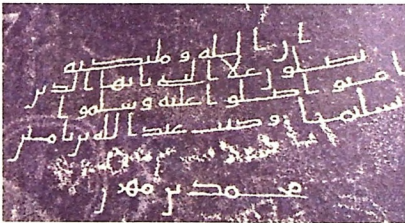 ان الله و ملئكته
يصلون على النبي يايها الذين
امنوا صلوا عليه وسلموا
تسليما وكتب عبد الله بن
محمد بن